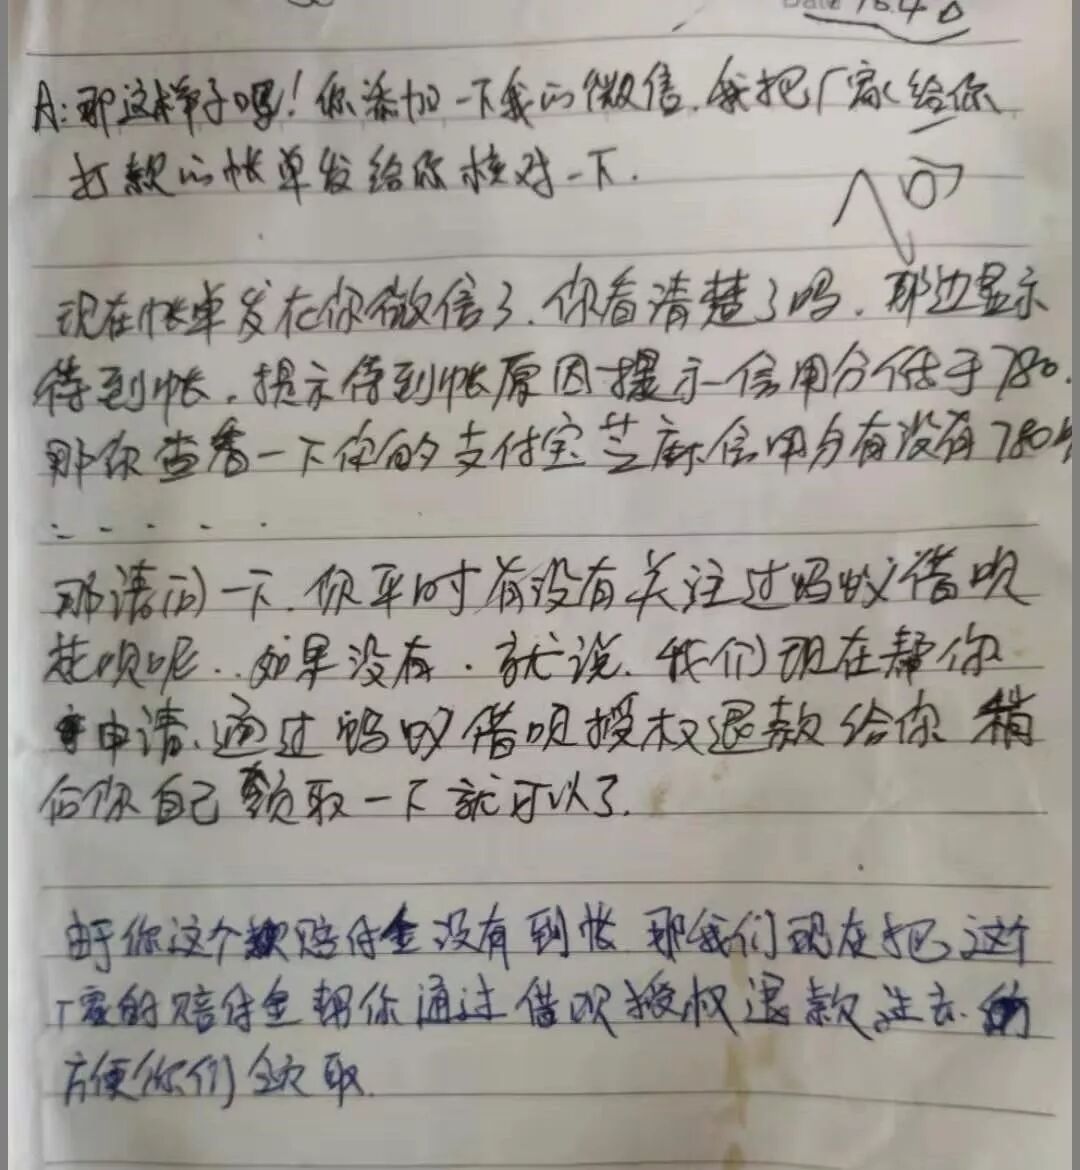 A:那这样子吗!你添加一下我的微信,我把厂家给你
打款的帐单发给你核对一下.
现在帐单发在你微信了.你看清楚了吗.那边显示
待到帐.提示待到帐原因提示信用分低于780.
那你查看一下你的支付宝芝麻信用分有没有780
.....
那请问一下.你平时有没有关注过蚂蚁借呗
花呗呢..如果没有.就说.我们现在帮你
申请.通过蚂蚁借呗授权退款给你 稍
后你自己领取一下就可以了.
由于你这个赔付金没有到帐 那我们现在把这个
厂家的赔付金帮你通过借呗授权退款进去.
方便你们领取.